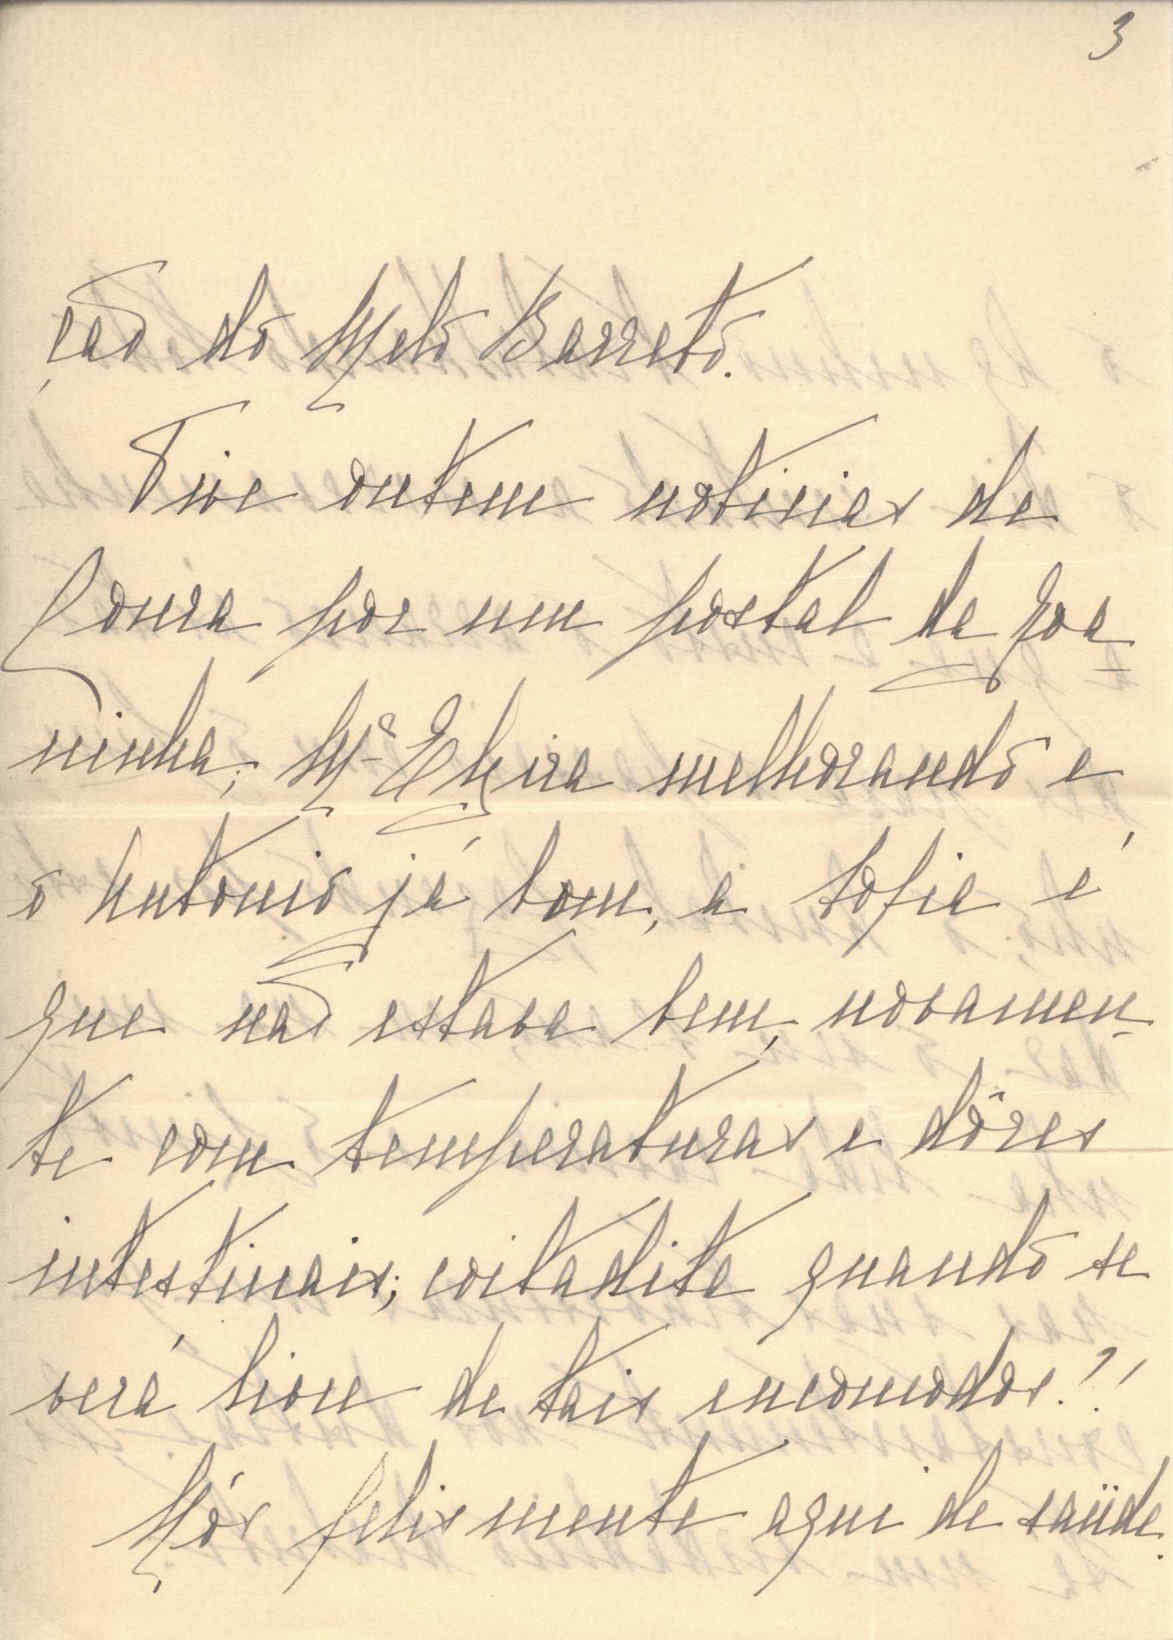 3
ção do Melo Barreto.
Tive ontem noticias de
Louza por um postal da Joa-
ninha; Mª Elvira melhorando e
o Antonio já bom, a Sofia é
que não estava bem, novamen-
te com temperaturas e dôres
intestinais; coitadita quando se
verá livre de tais encomodos!!
Nós felismente aqui de saüde.